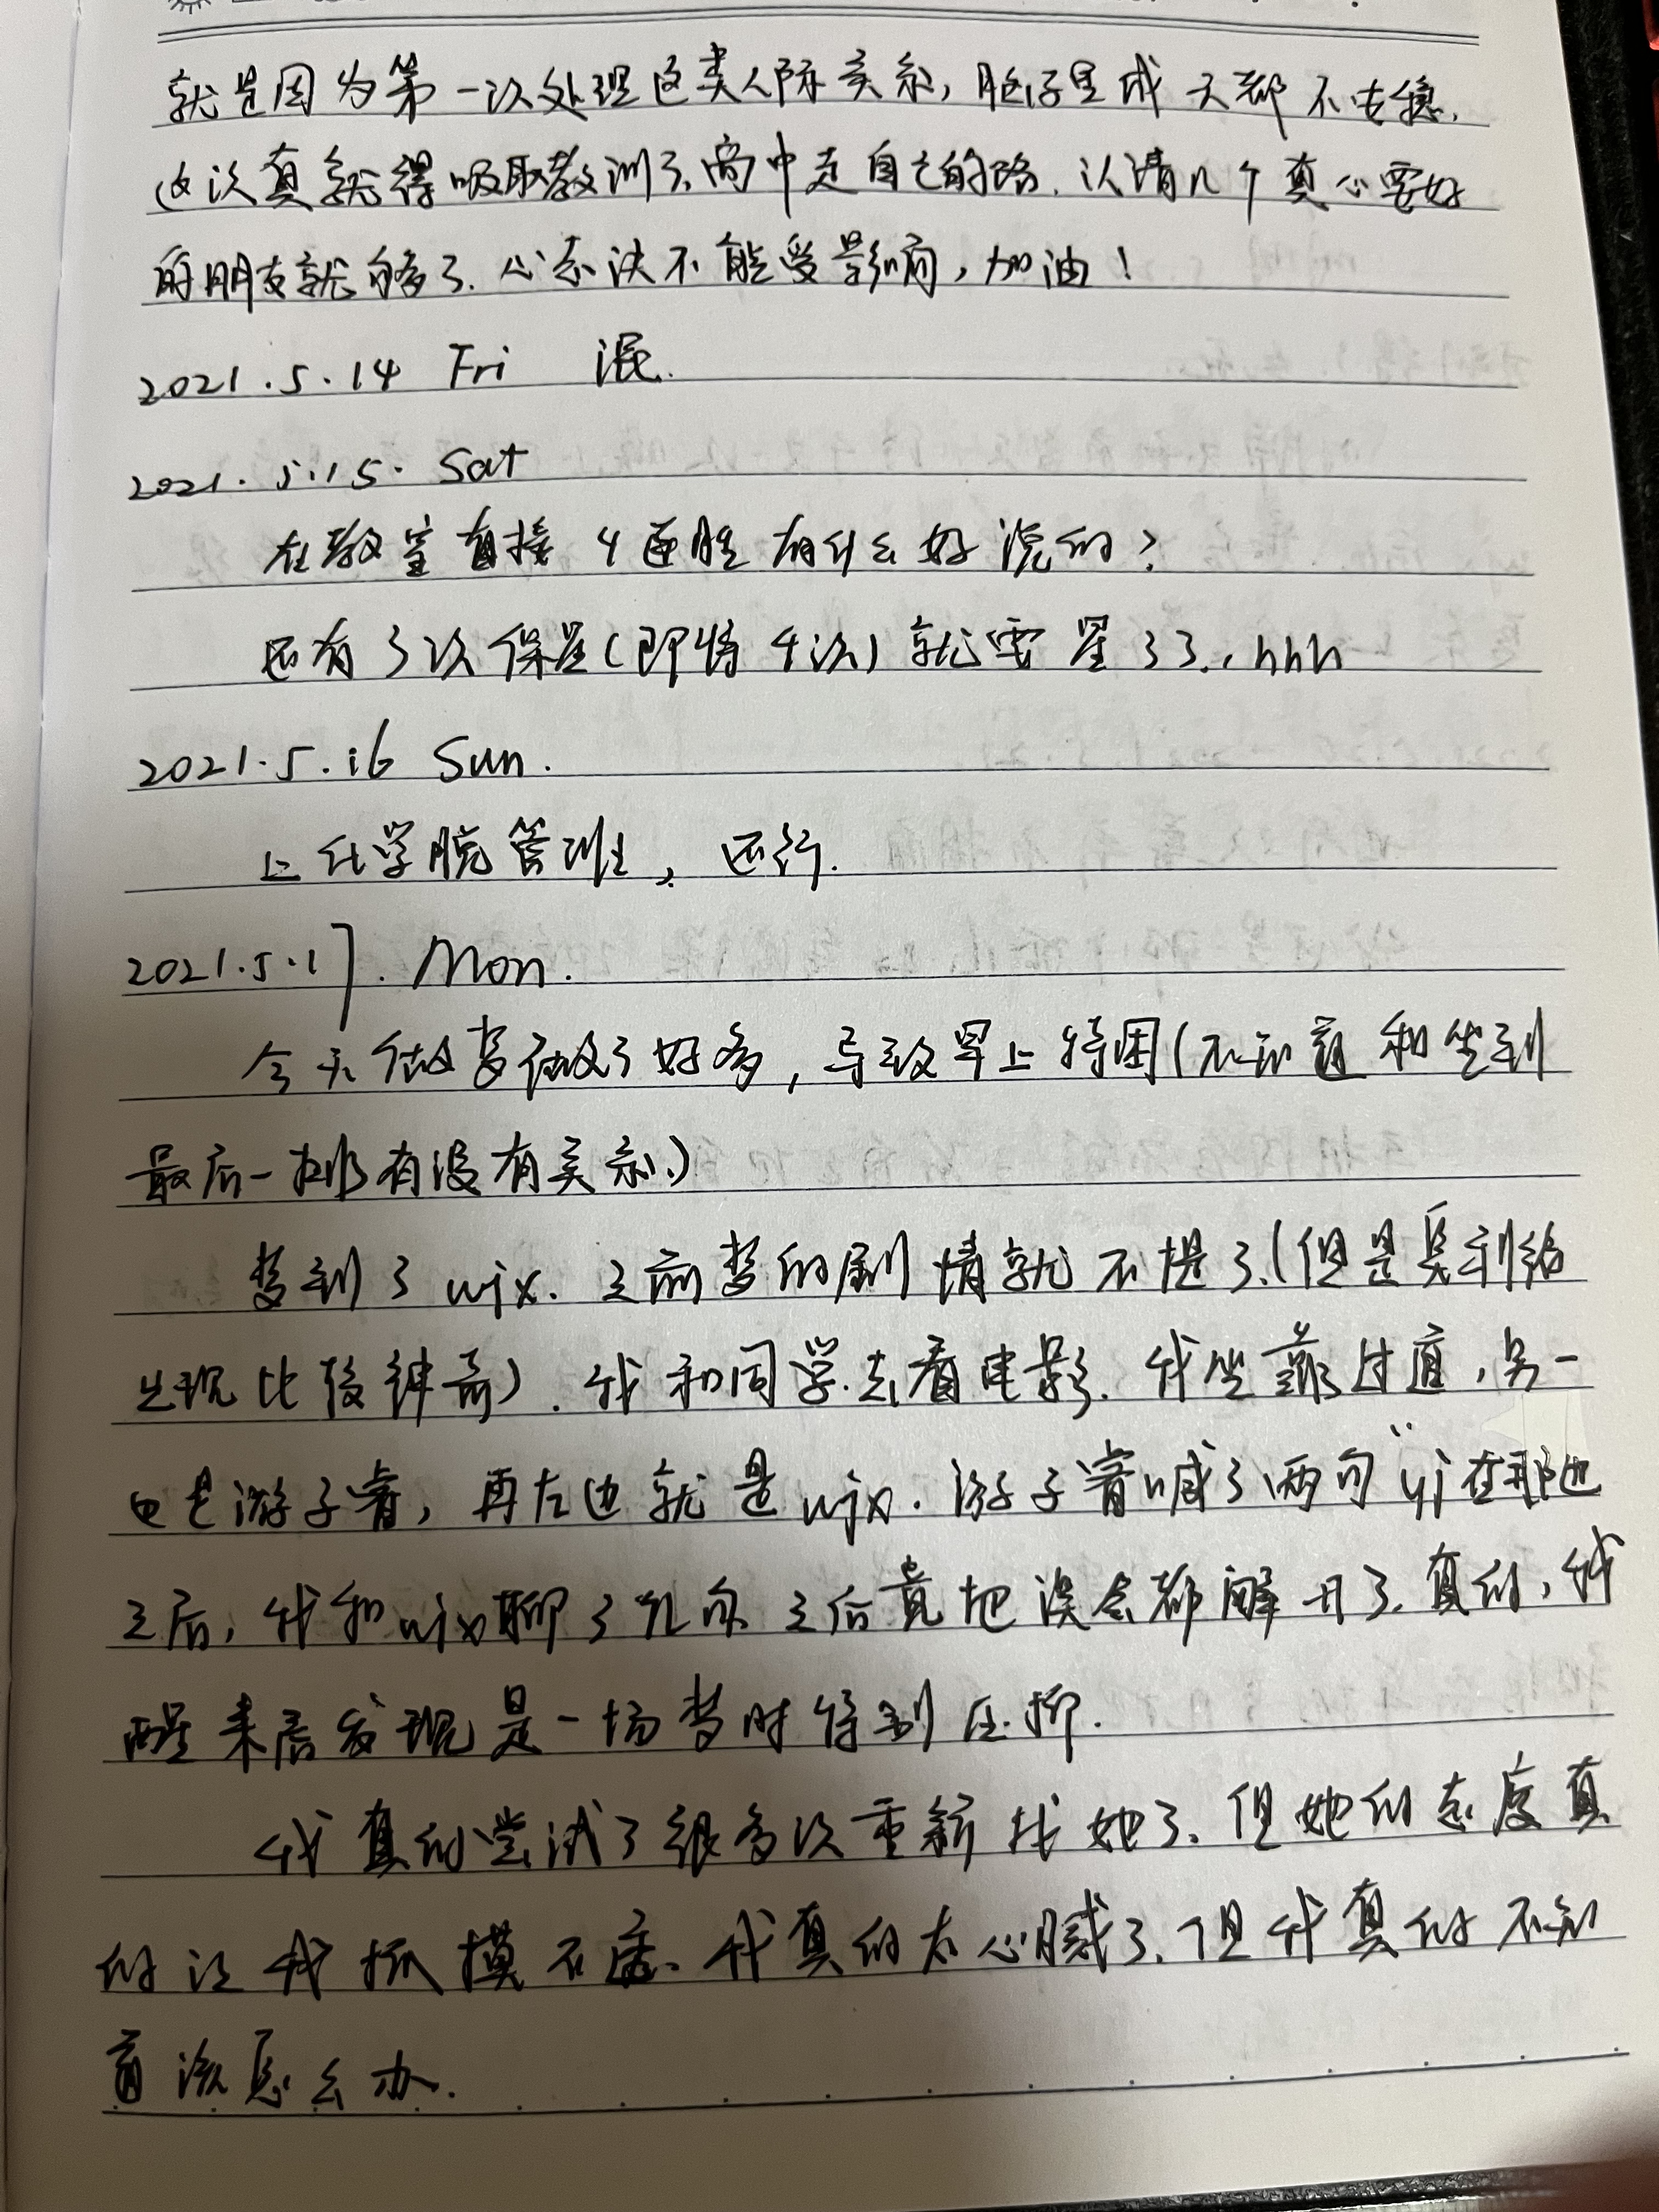 就是因为第一次处理这类人际关系，脑子里成天都不安稳.
这次真就得吸取教训了.高中走自己的路.认清几个真心要好
的朋友就够了.心态决不能受影响，加油！
2021.5.14 Fri 混.
2021.5.15. Sat
在教室直接4连胜有什么好说的？
还有3次保星(即将4次)就要星33.，hhh
2021.5.16 Sun.
上化学脱管班，还行.
2021.5.17. Mon.
今天做梦做了好多，导致早上特困(不知道和坐到
最后一排有没有关系.)
梦到了wjx.之前梦的剧情就不提了.(但是奥利给
出现比较神奇).我和同学去看电影.我坐靠过道，另一
边是游子睿，再左边就是wjx.游子睿喊了两句"yj在那边"
之后，我和wjx聊了几句之后竟把误会都解开了.真的，我
醒来后发现是一场梦时特别压抑.
我真的尝试了很多次重新找她了.但她的态度真
的让我抓摸不透.我真的太心腻了.但我真的不知
道该怎么办.